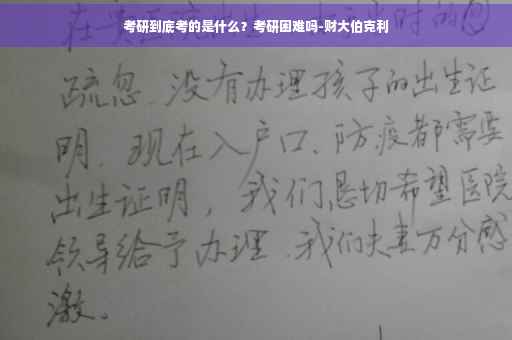 考研到底考的是什么？考研困难吗-财大伯克利
疏忽、没有办理孩子的出生证
明、现在入户口、防疫都需要
出生证明，我们恳切希望医院
领导给予办理、我们夫妻万分感
激。